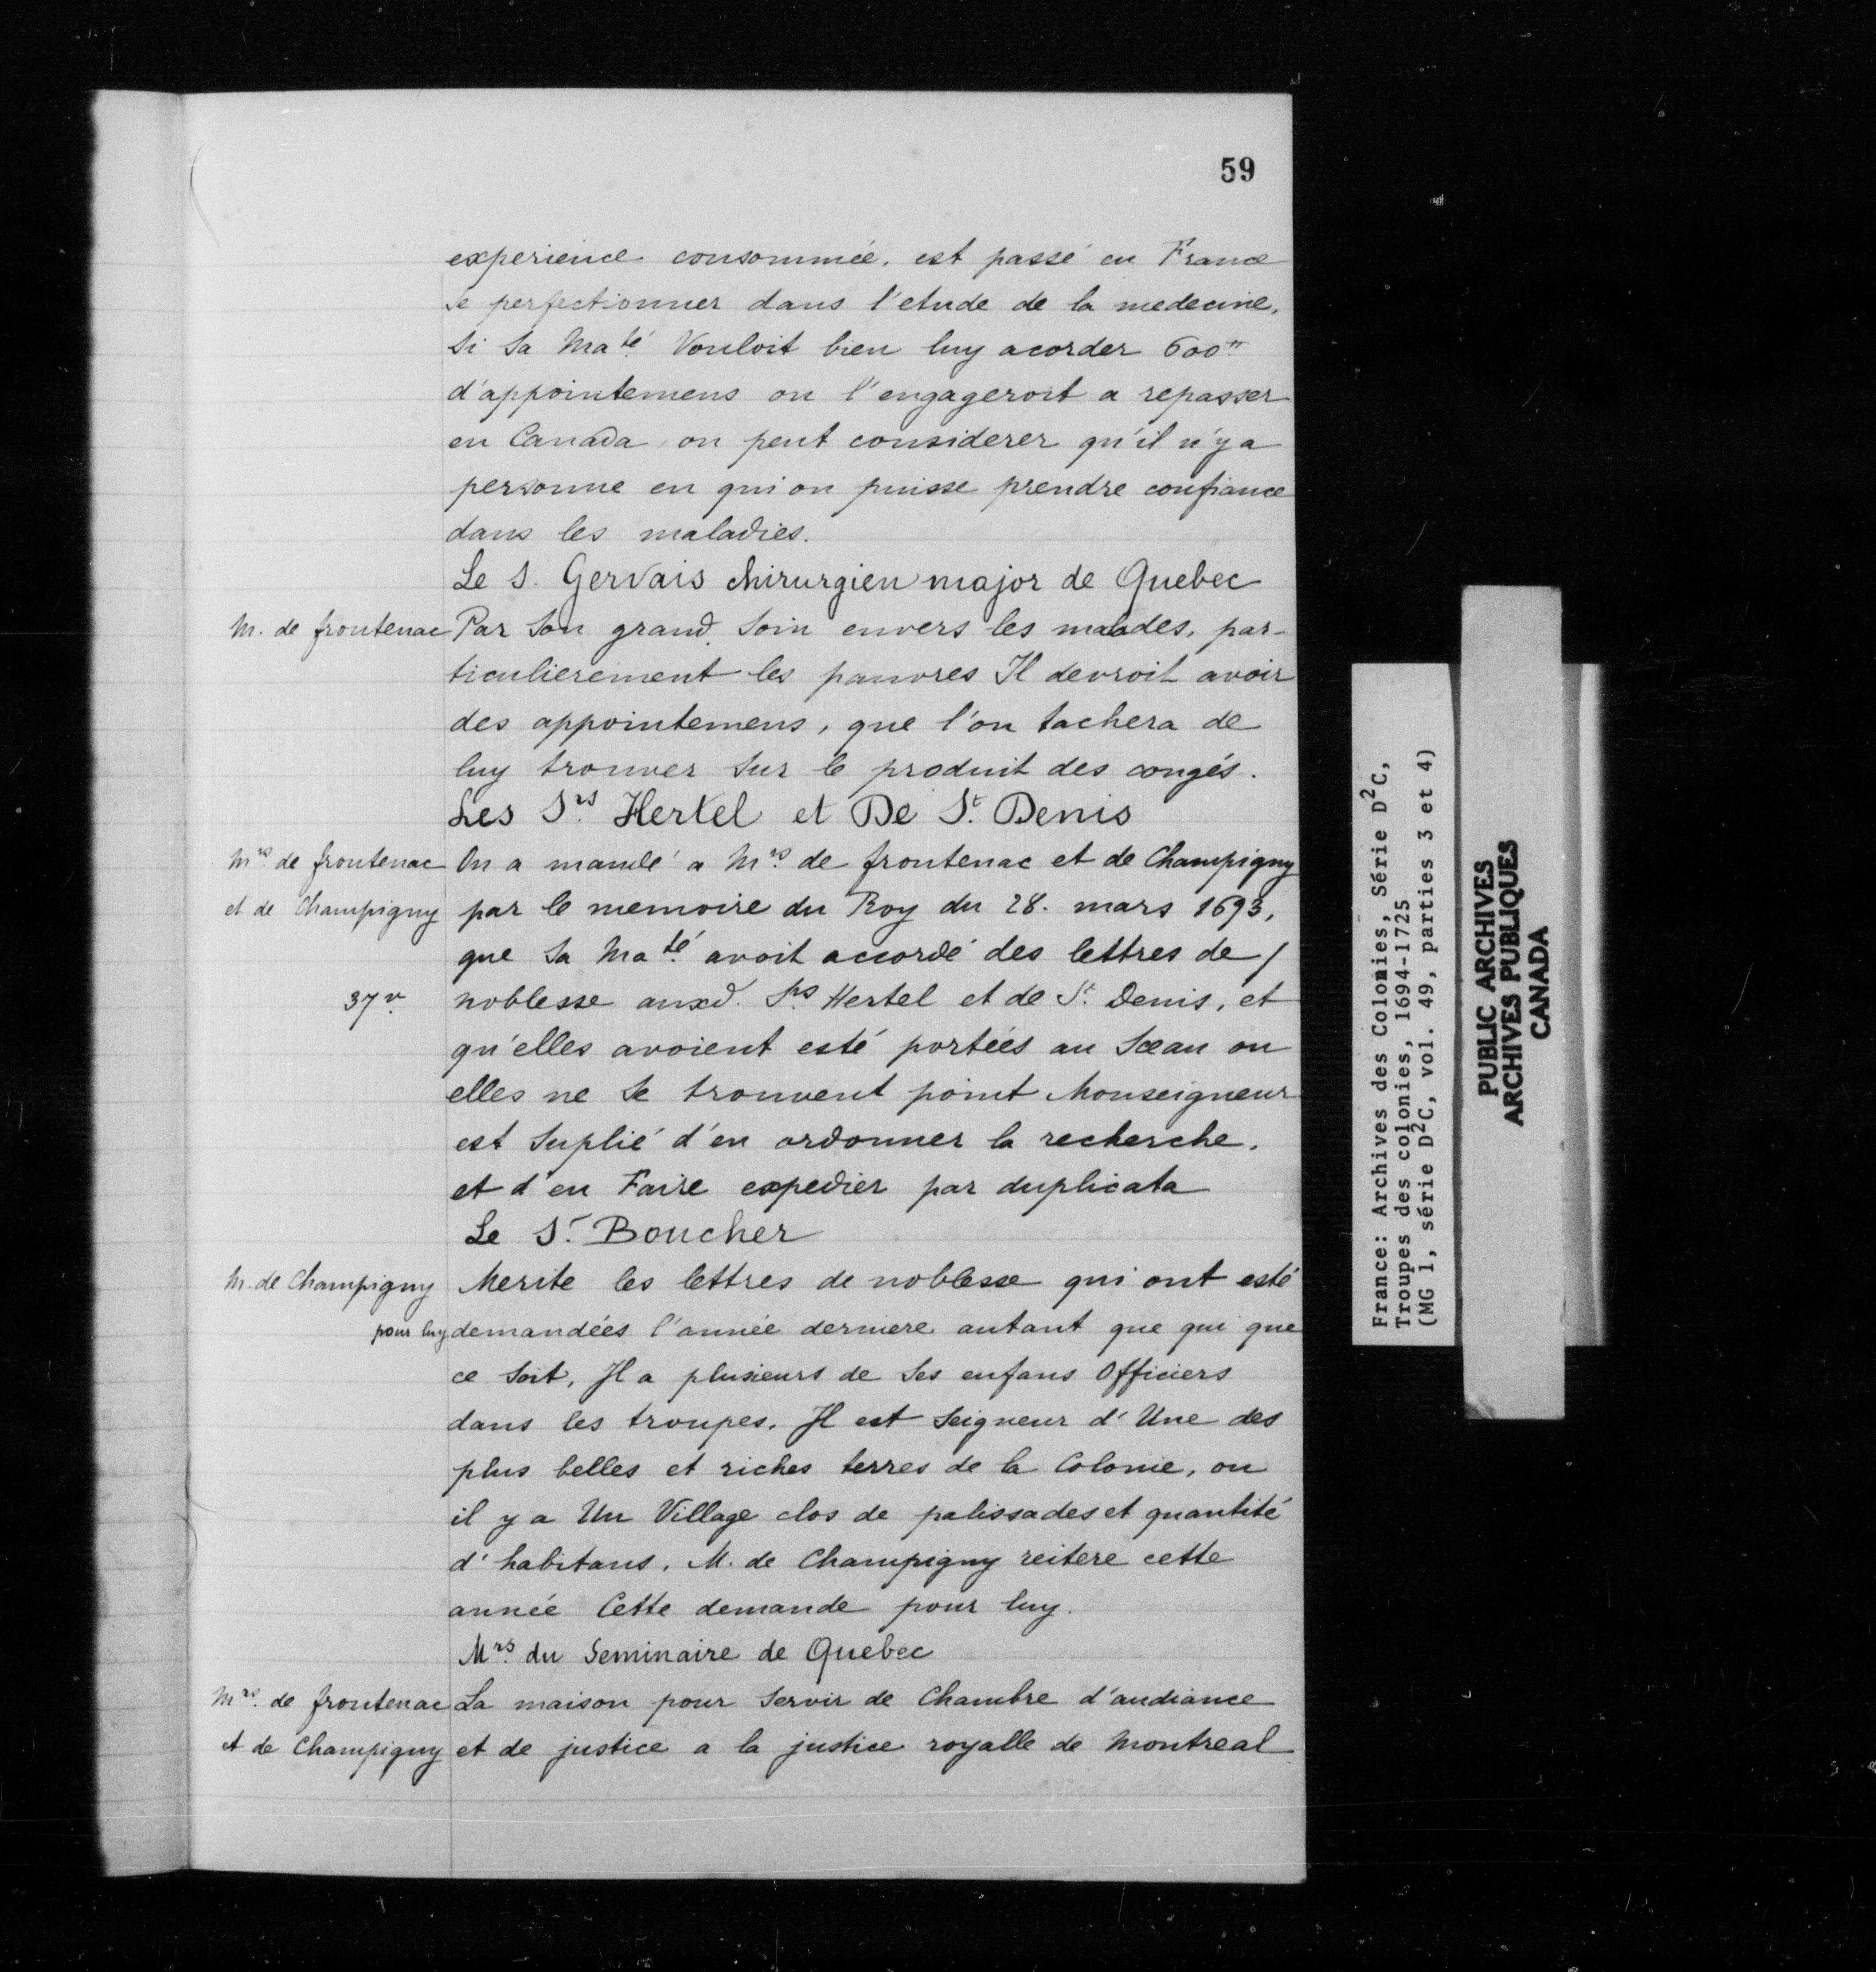 59
experience consommée, est passé en France
se perfectionner dans l'etude de la medecine.
Si Sa Maté Vouloit bien luy acorder 600tt
d'appointemens on l'engageroit a repasser
en Canada, on peut considerer qu'il n'y a
personne en qui on puisse prendre confiance
dans les maladies.
Le S. Gervais chirurgien major de Quebec
M. de frontenac
Par Son grand Soin envers les malades, par-
ticulierement les pauvres Il devroit avoir
des appointemens, que l'on tachera de
luy trouver Sur le produit des congés.
Les Srs Hertel et De St Denis
Mrs de frontenac
et de Champigny
On a mandé a Mrs de frontenac et de Champigny
par le memoire du Roy du 28. mars 1693,
que Sa Maté avoit accordé des lettres de /
37v.
noblesse auxd. Srs Hertel et de St Denis, et
qu'elles avoient esté portées au Sceau ou
elles ne Se trouvent point Monseigneur
est Suplié d'en ordonner la recherche.
et d'en Faire expedier par duplicata
Le Sr Boucher
M. de Champigny
pour luy
Merite les lettres de noblesse qui ont esté
demandées l'année derniere autant que qui que
ce Soit, Il a plusieurs de Ses enfans Officiers
dans les troupes. Il est Seigneur d'Une des
plus belles et riches terres de la Colonie, ou
il y a Un Village clos de palissades et quantité
d'habitans. M. de Champigny reitere cette
année Cette demande pour luy.
Mrs du Seminaire de Quebec
Mrs de frontenac
et de Champigny
La maison pour Servir de Chambre d'audiance
et de justice a la justice royalle de Montreal
France: Archives des Colonies, Série D2C,
Troupes des colonies, 1694-1725
(MG 1, série D2C, vol. 49, parties 3 et 4)
PUBLIC ARCHIVES
ARCHIVES PUBLIQUES
CANADA